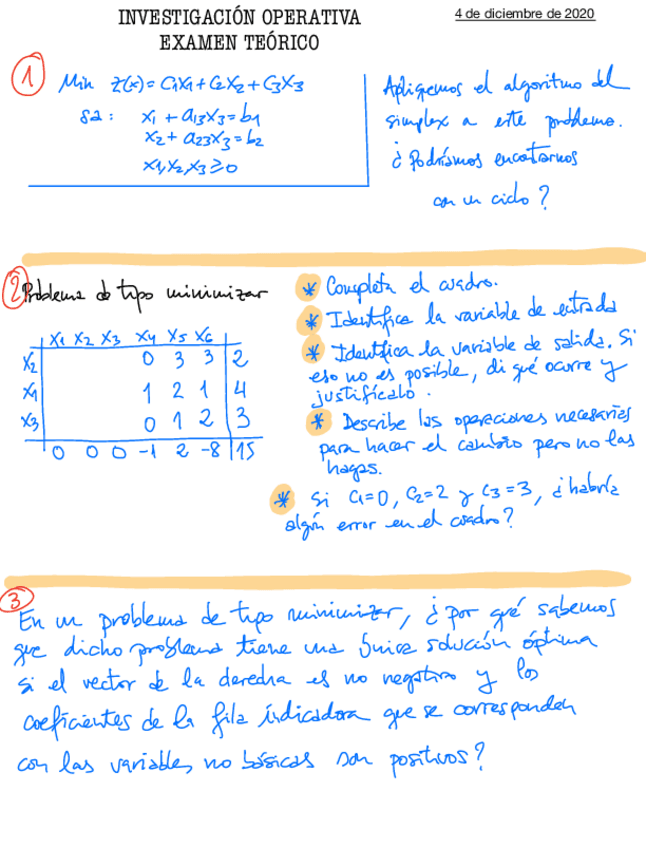 INVESTIGACIÓN OPERATIVA
4 de diciembre de 2020
EXAMEN TEÓRICO
1
Min z(x) = C1X1 + C2X2 + C3X3
sa: x1 + a13X3 = b1
x2 + a23X3 = b2
X1, X2, X3 ≥ 0
Apliquemos el algoritmo del
simplex a este problema.
¿Podríamos encontrarnos
con un ciclo?
2 Problema de tipo minimizar
X1 X2 X3 X4 X5 X6
X2 0 3 3 2
X1 1 2 1 4
X3 0 1 2 3
0 0 0 -1 2 -8 15
* Completa el cuadro.
* Identifica la variable de entrada
* Identifica la variable de salida. Si
eso no es posible, di qué ocurre y
justifícalo.
* Describe las operaciones necesarias
para hacer el cambio pero no las
hagas.
* Si C1=0, C2=2 y C3=3, ¿habría
algún error en el cuadro?
3
En un problema de tipo minimizar, ¿por qué sabemos
que dicho problema tiene una única solución óptima
si el vector de la derecha es no negativo y los
coeficientes de la fila indicadora que se corresponden
con las variables no básicas son positivos?